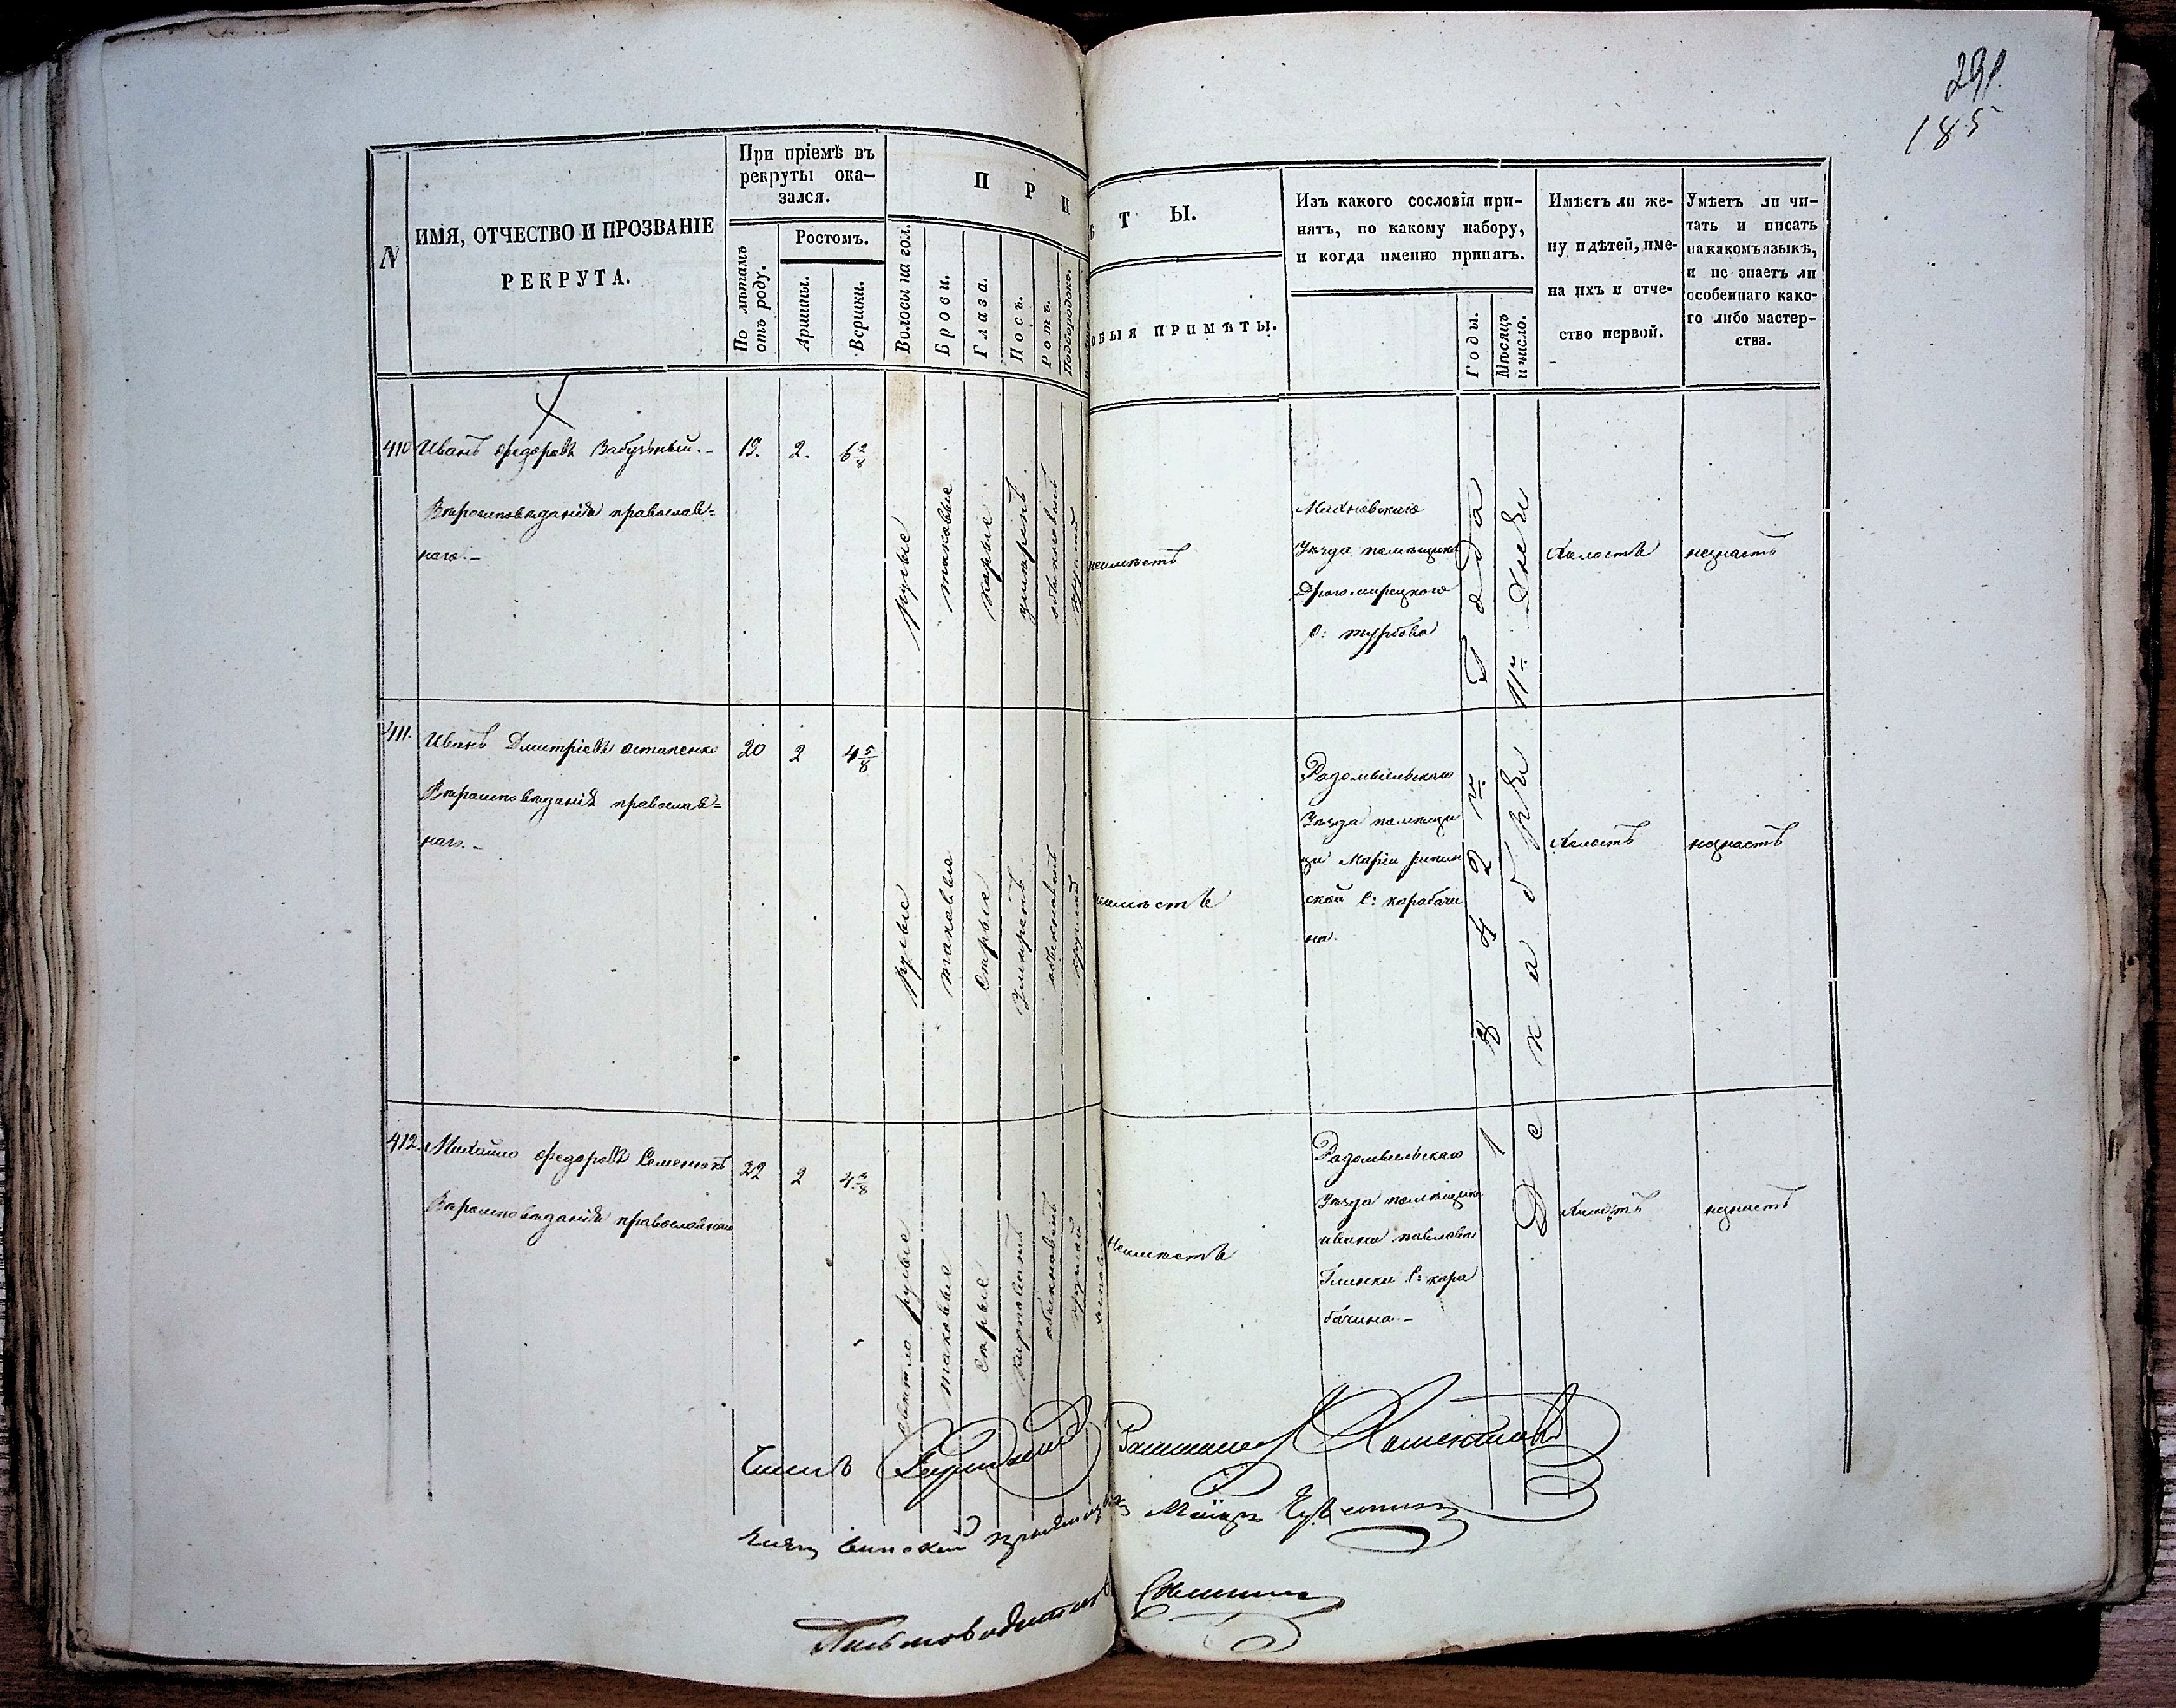 291.
185
N
ИМЯ, ОТЧЕСТВО И ПРОЗВАНІЕ
РЕКРУТА.
При пріемѣ въ
рекруты ока-
зался.
По лѣтамъ
отъ роду.
Ростомъ.
Аршины.
Вершки.
П Р И
Волосы на гол.
Брови.
Глаза.
Носъ.
Ротъ.
Подбородокъ.
Т Ы.
ПРИМѢТЫ.
Изъ какого сословія при-
нятъ, по какому набору,
и когда именно принятъ.
Годы.
Мѣсяцъ
и число.
Имѣетъ ли же-
ну и дѣтей, име-
на ихъ и отче-
ство первой.
Умѣетъ ли чи-
тать и писать
на какомъ языкѣ,
и не знаетъ ли
особеннаго како-
го либо мастер-
ства.
410 Иванъ Федоровъ
Вѣроисповѣданія православ=
наго.-
19. 2. 6 2/8
русые
таковые
карые
умѣренъ
обыкновенъ
круглый
неимѣетъ
Махновскаго
Уѣзда помѣщика
Дрогомирецкаго
с: турбова
Холостъ
незнаетъ
411. Иванъ Дмитріевъ Остапенко
Вѣроисповѣданія православ=
наго.-
20 2 4 5/8
русые
таковые
Сѣрые
Умѣренъ
обыкновенъ
круглый
неимѣетъ
Радомысльскаго
Уѣзда помѣщи
цы Маріи
ской с: карабачи
на.
Холостъ
незнаетъ
412. Михайло Федоровъ Семенюкъ
Вѣроисповѣданія православнаго
22 2
свѣтло русые
таковые
Сѣрые
обыкновенъ
круглый
Неимѣетъ
Радомысльскаго
Уѣзда помѣщика
ивана павлова
Глинки с: кара
бачина.-
Холостъ
незнаетъ
1842го Года
Декабря 11го Дня
Членъ
Маіоръ
Письмоводитель